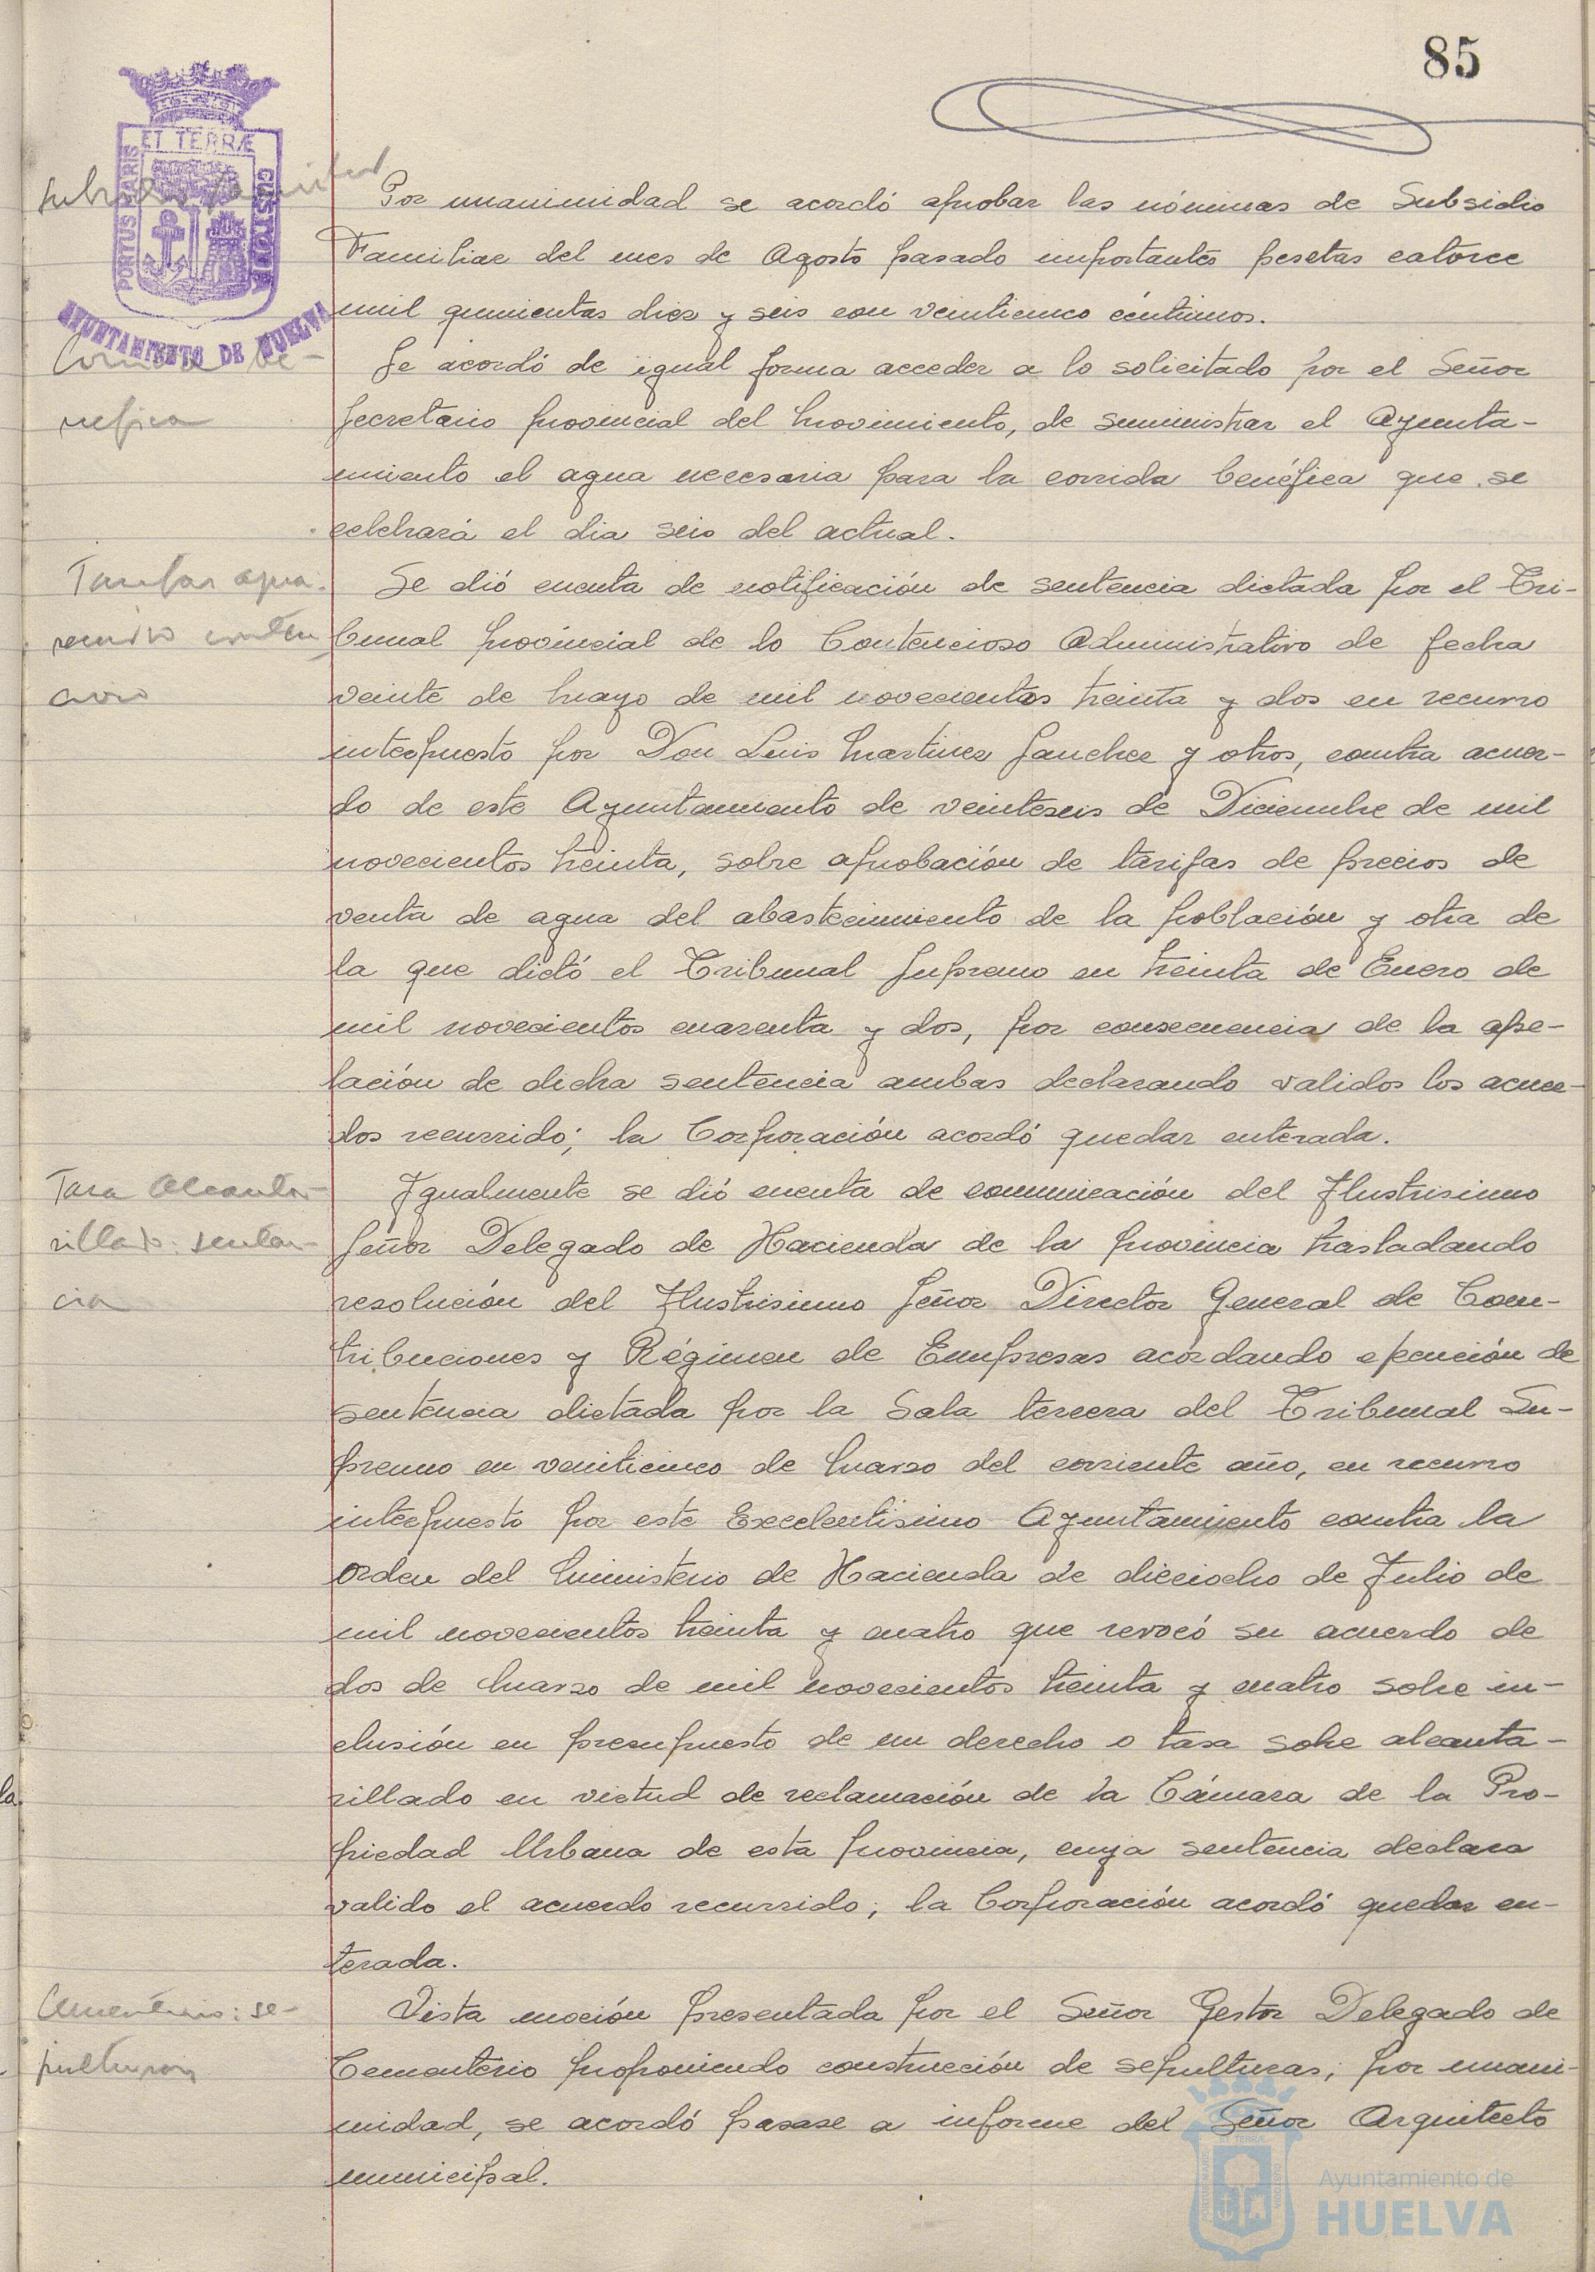 85
ET TERRÆ
PORTUS MARIS
CUSTODIA
AYUNTAMIENTO DE HUELVA
Subsidio Familiar
Por unanimidad se acordó aprobar las nóminas de Subsidio
Familiar del mes de Agosto pasado importantes pesetas catorce
mil quinientas diez y seis con veinticinco céntimos.
Corrida be-
néfica
Se acordó de igual forma acceder a lo solicitado por el Señor
Secretario provincial del Movimiento, de suministrar el Ayunta-
miento el agua necesaria para la corrida benéfica que se
celebrará el dia seis del actual.
Tarifas agua:
recurso conten
cioso
Se dió cuenta de notificación de sentencia dictada por el Tri-
bunal provincial de lo Contencioso Administrativo de fecha
veinte de Mayo de mil novecientos treinta y dos en recurso
interpuesto por Don Luis Martinez Sanchez y otros, contra acuer-
do de este Ayuntamiento de veinteseis de Diciembre de mil
novecientos treinta, sobre aprobación de tarifas de precios de
venta de agua del abastecimiento de la población y otra de
la que dictó el Tribunal Supremo en treinta de Enero de
mil novecientos cuarenta y dos, por consecuencia de la ape-
lación de dicha sentencia ambas declarando validos los acuer-
dos recurrido; la Corporación acordó quedar enterada.
Tasa Alcanta-
rillado: senten-
cia
Igualmente se dió cuenta de comunicación del Ilustrisimo
Señor Delegado de Hacienda de la provincia trasladando
resolución del Ilustrisimo Señor Director General de Con-
tribuciones y Régimen de Empresas acordando ejecución de
sentencia dictada por la Sala tercera del Tribunal Su-
premo en veinticinco de Marzo del corriente año, en recurso
interpuesto por este Excelentisimo Ayuntamiento contra la
Orden del Ministerio de Hacienda de dieciocho de Julio de
mil novecientos treinta y cuatro que revocó su acuerdo de
dos de Marzo de mil novecientos treinta y cuatro sobre in-
clusión en presupuesto de un derecho o tasa sobre alcanta-
rillado en virtud de reclamación de la Cámara de la Pro-
piedad Urbana de esta provincia, cuya sentencia declara
valido el acuerdo recurrido; la Corporación acordó quedar en-
terada.
Cementerio: se-
pulturas
Vista moción presentada por el Señor Gestor Delegado de
Cementerio proponiendo construcción de sepulturas; por unani-
midad, se acordó pasase a informe del Señor Arquitecto
municipal.
la
Ayuntamiento de
HUELVA